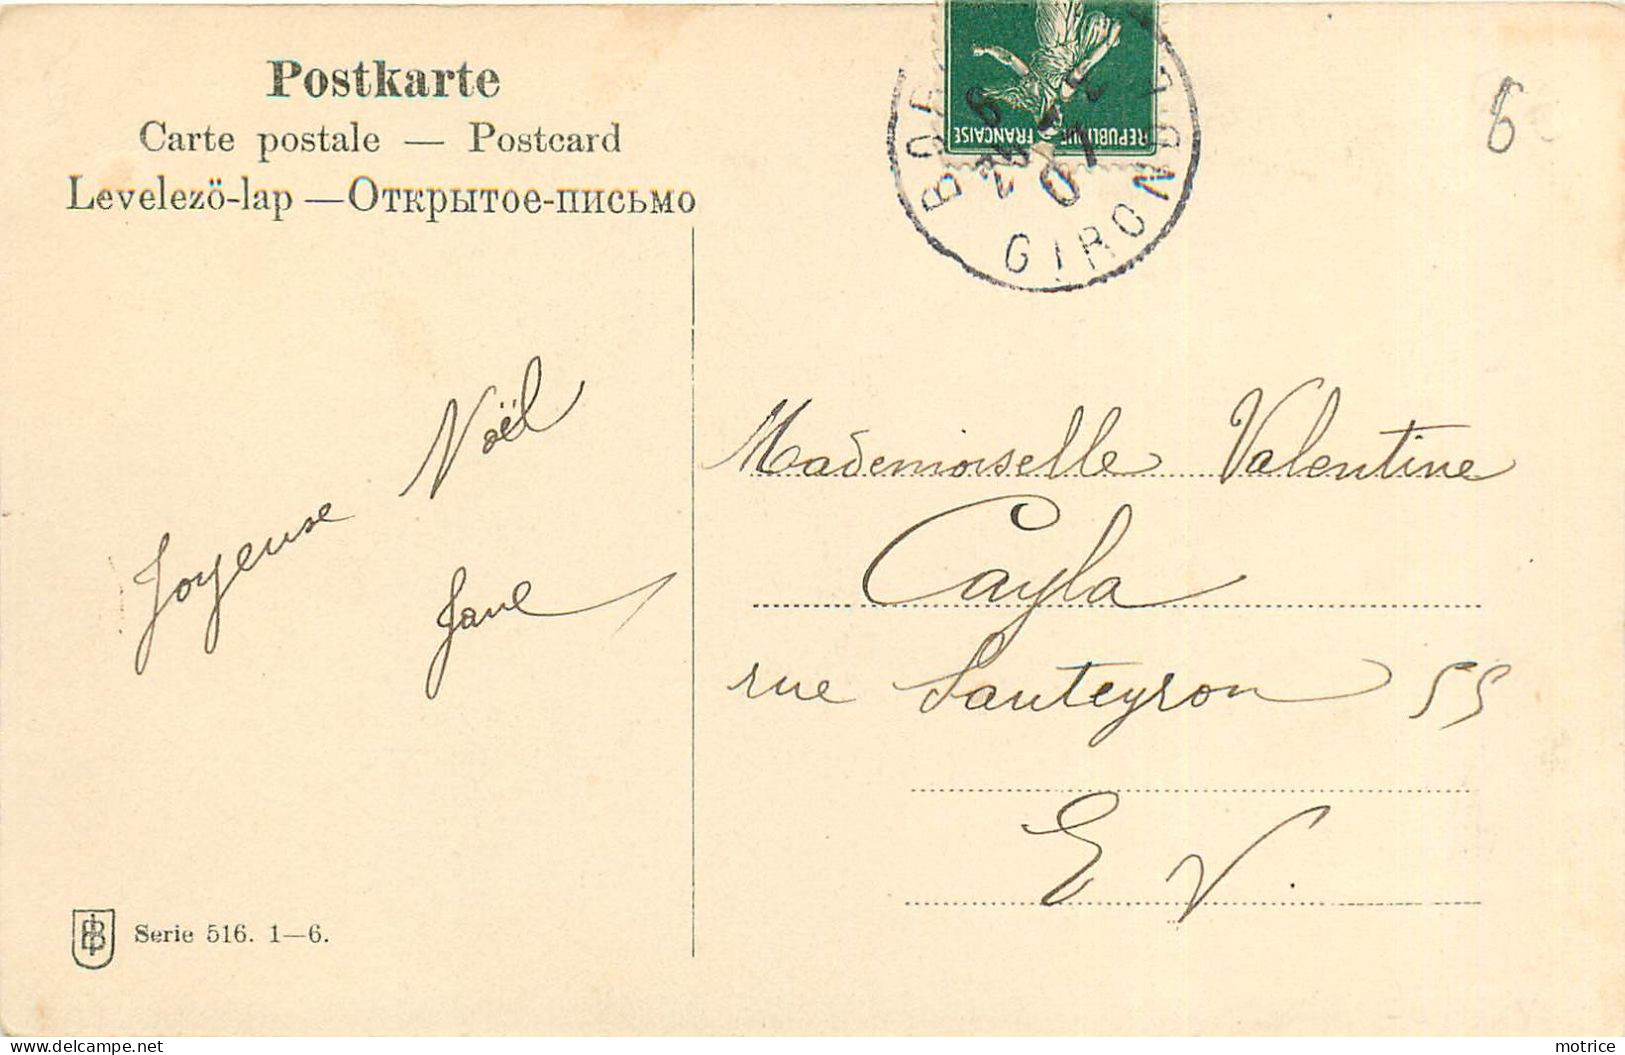 Postkarte
Carte postale — Postcard
Levelezö-lap — Открытое-письмо
REPUBLIQUE FRANÇAISE
GIRONDE
6
Joyeuse Noël
Jane
Mademoiselle Valentine
Cayla
rue Sauteyron 55
E V.
Serie 516. 1—6.
motrice